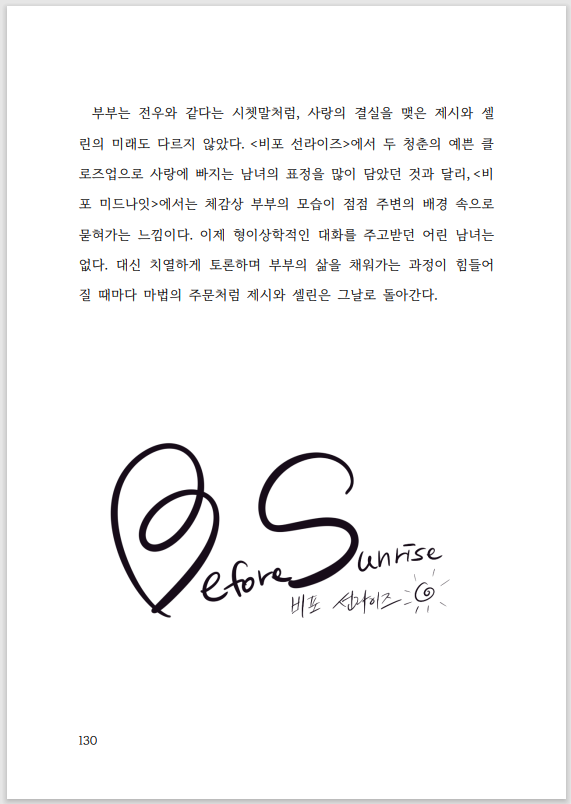 부부는 전우와 같다는 시쳇말처럼, 사랑의 결실을 맺은 제시와 셀
린의 미래도 다르지 않았다. <비포 선라이즈>에서 두 청춘의 예쁜 클
로즈업으로 사랑에 빠지는 남녀의 표정을 많이 담았던 것과 달리, <비
포 미드나잇>에서는 체감상 부부의 모습이 점점 주변의 배경 속으로
묻혀가는 느낌이다. 이제 형이상학적인 대화를 주고받던 어린 남녀는
없다. 대신 치열하게 토론하며 부부의 삶을 채워가는 과정이 힘들어
질 때마다 마법의 주문처럼 제시와 셀린은 그날로 돌아간다.
Before Sunrise
비포 선라이즈
130